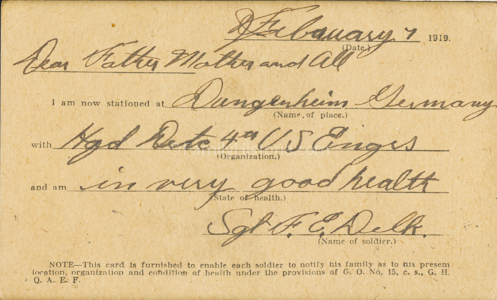 February 7 1919.
(Date.)
Dear Father Mother and All
I am now stationed at Dungenheim Germany
(Name of place.)
with Hqd Detc 4th U S Engrs
(Organization.)
and am in very good health
(State of health.)
Sgt F. E. Delk.
(Name of soldier.)
NOTE—This card is furnished to enable each soldier to notify his family as to his present
location, organization and condition of health under the provisions of G. O. No. 15, c. s., G. H.
Q. A. E. F.